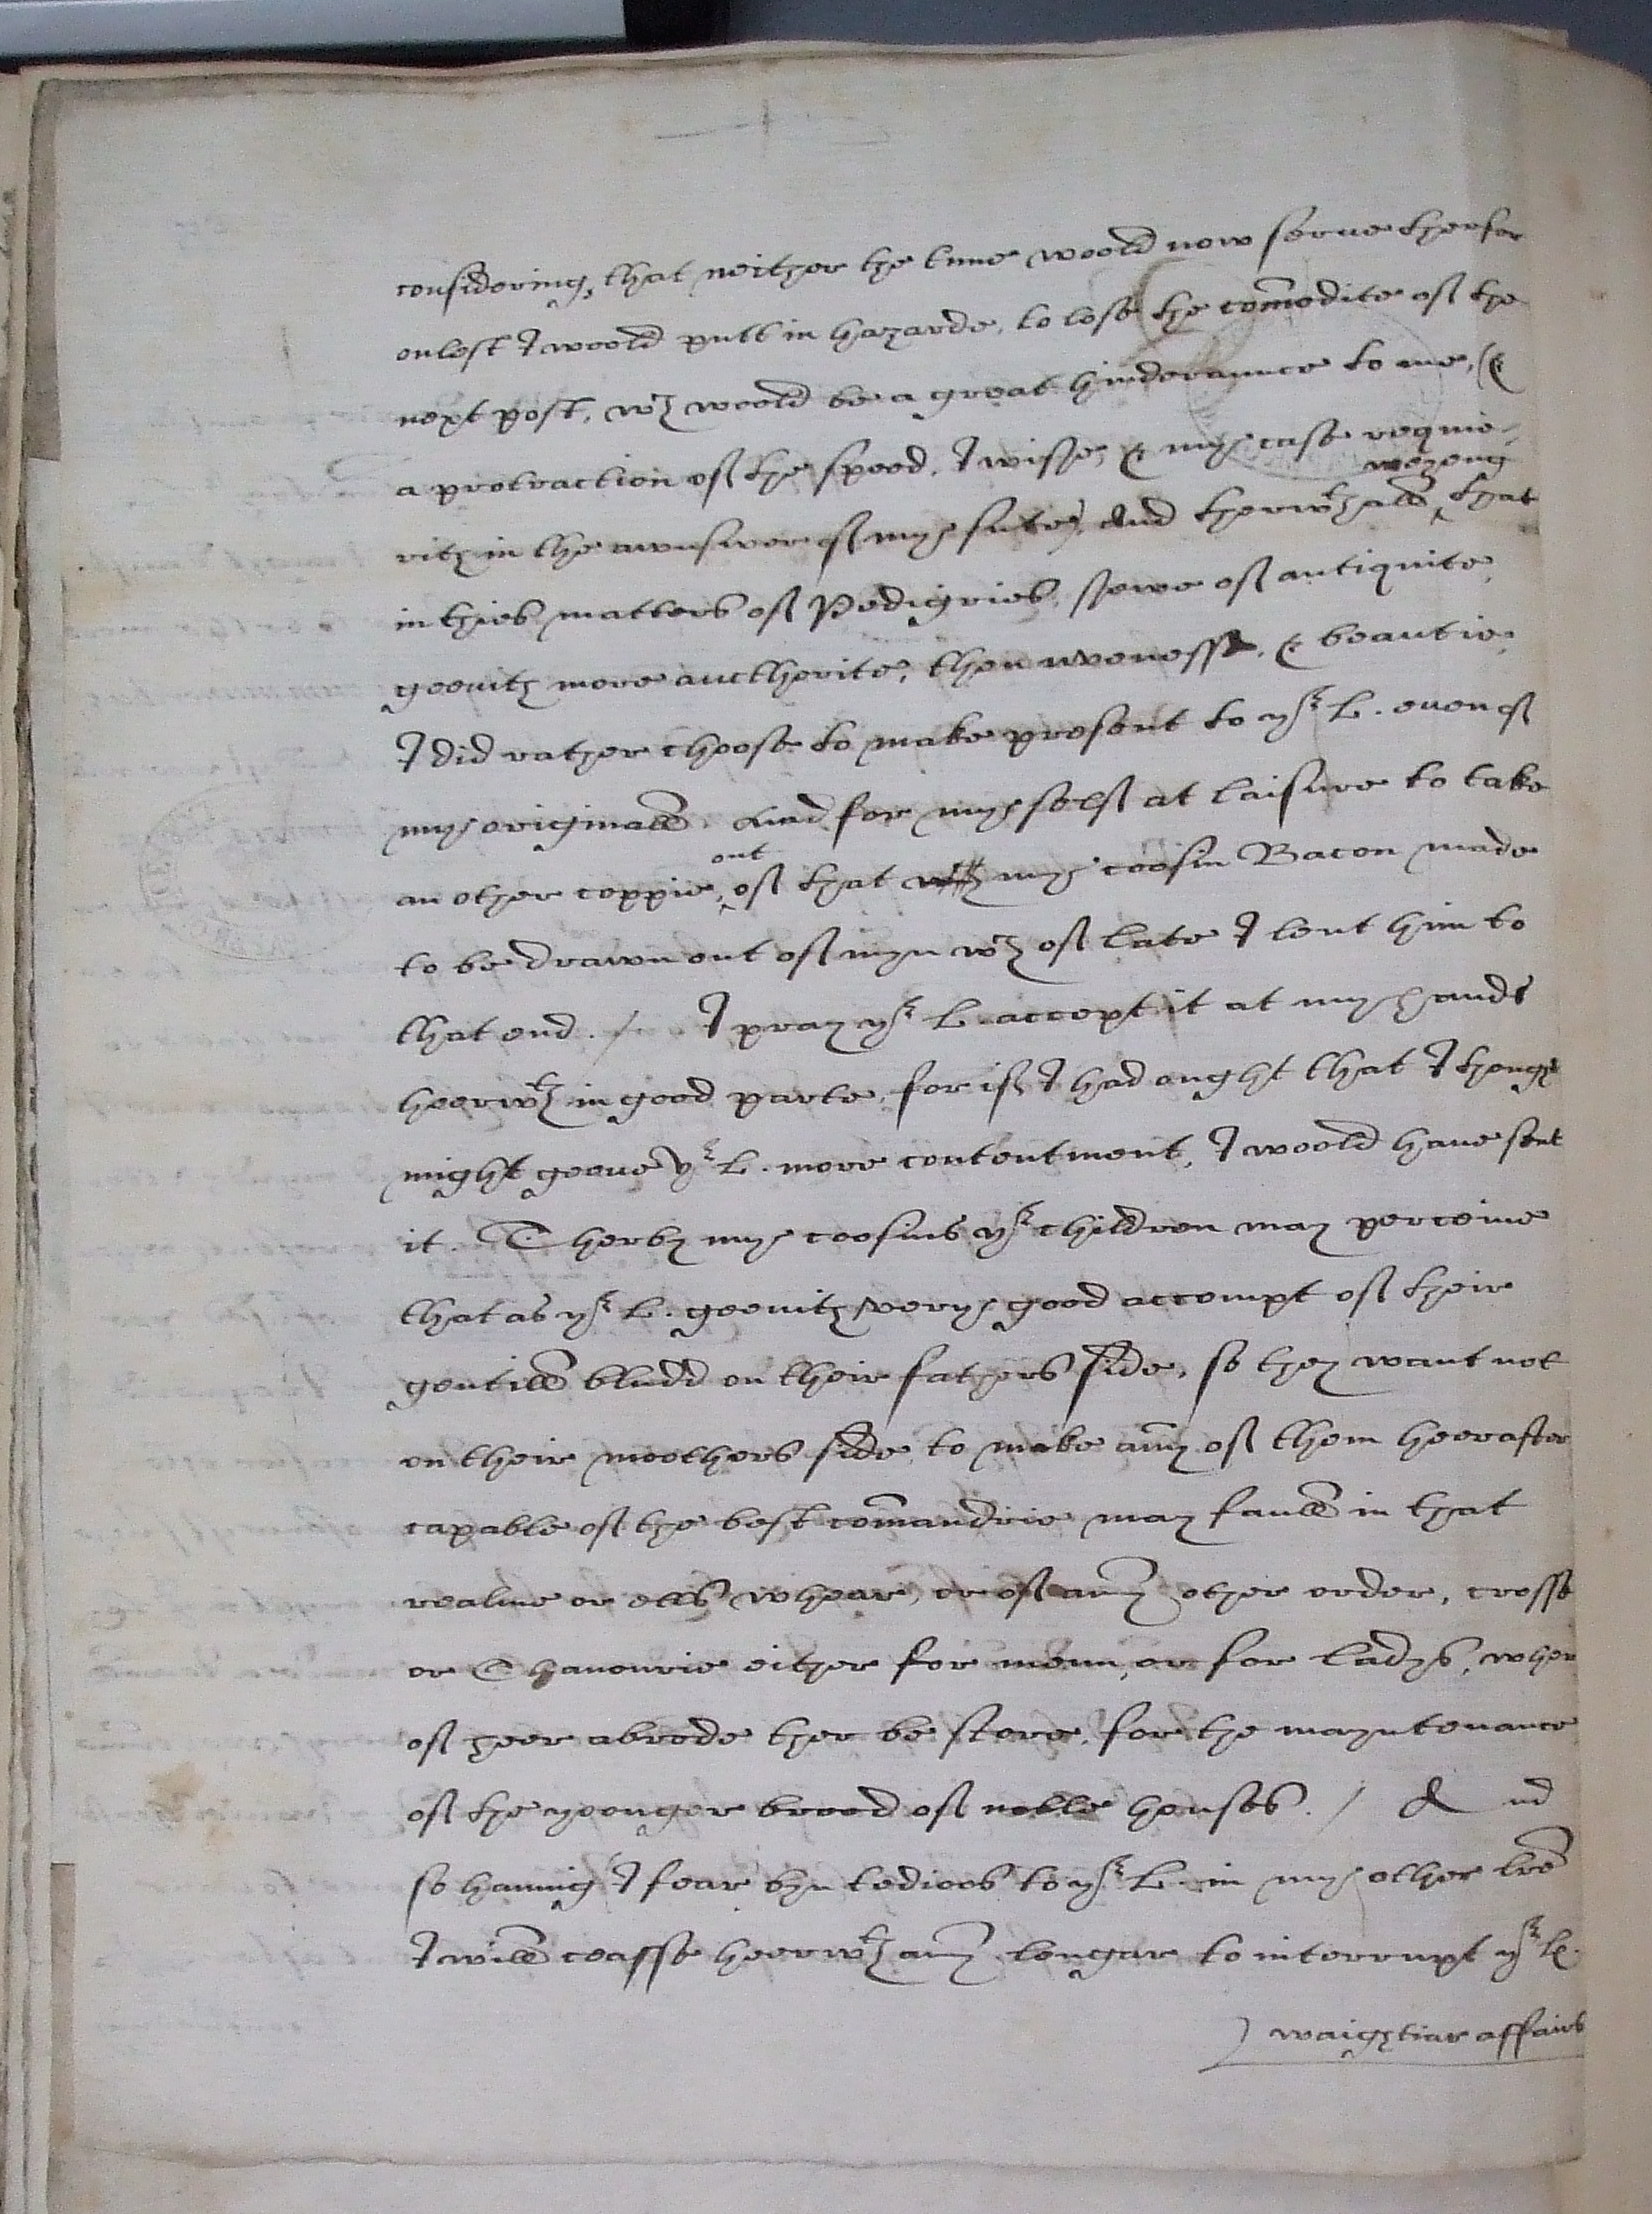 considering, that neither the time woold now serue therfor
onlest I woold putt in hazarde, to lose the com̄odite of the
next post, wch woold be a great hinderaunce to me, &
a protraction of the speed, I wisshe, & my case requie-
rith in the awnswer of my sute, And therwthall, weyeng that
in thies matters of Pedigries, shewe of antiquite,
geevith more aucthorite, then newnesse, & beautie,
I did rather choose to make present to yor L. euen of
my originall. And for my self at laisure to take
an other coppie, out of that wch my coosin Bacon made
to be drawn out of myn wch of late I lent him to
that end. / I pray yor L. accept it at my hands
heerwth in good parte, for if I had ought that I thought
might geeue yor L. more contentment, I woold haue sent
it. Therby my coosins yor children may perceiue
that as yor L. geevith very good accompt of their
gentill bludd on their fathers side, so they want not
on their moothers side to make any of them heerafter
capable of the best com̄andrie may faull in that
realme or ells whear, or of any other order, crosse
or Chanonrie either for menn, or for ladys, wher
of heer abrode ther be store, for the mayntenance
of the yoonger brood of noble houses. / And
so hauing I fear byn tedioos to yor L. in my other lr̄e
I will ceasse heerwth any longar to interrupt yor L.
waightiar affairs